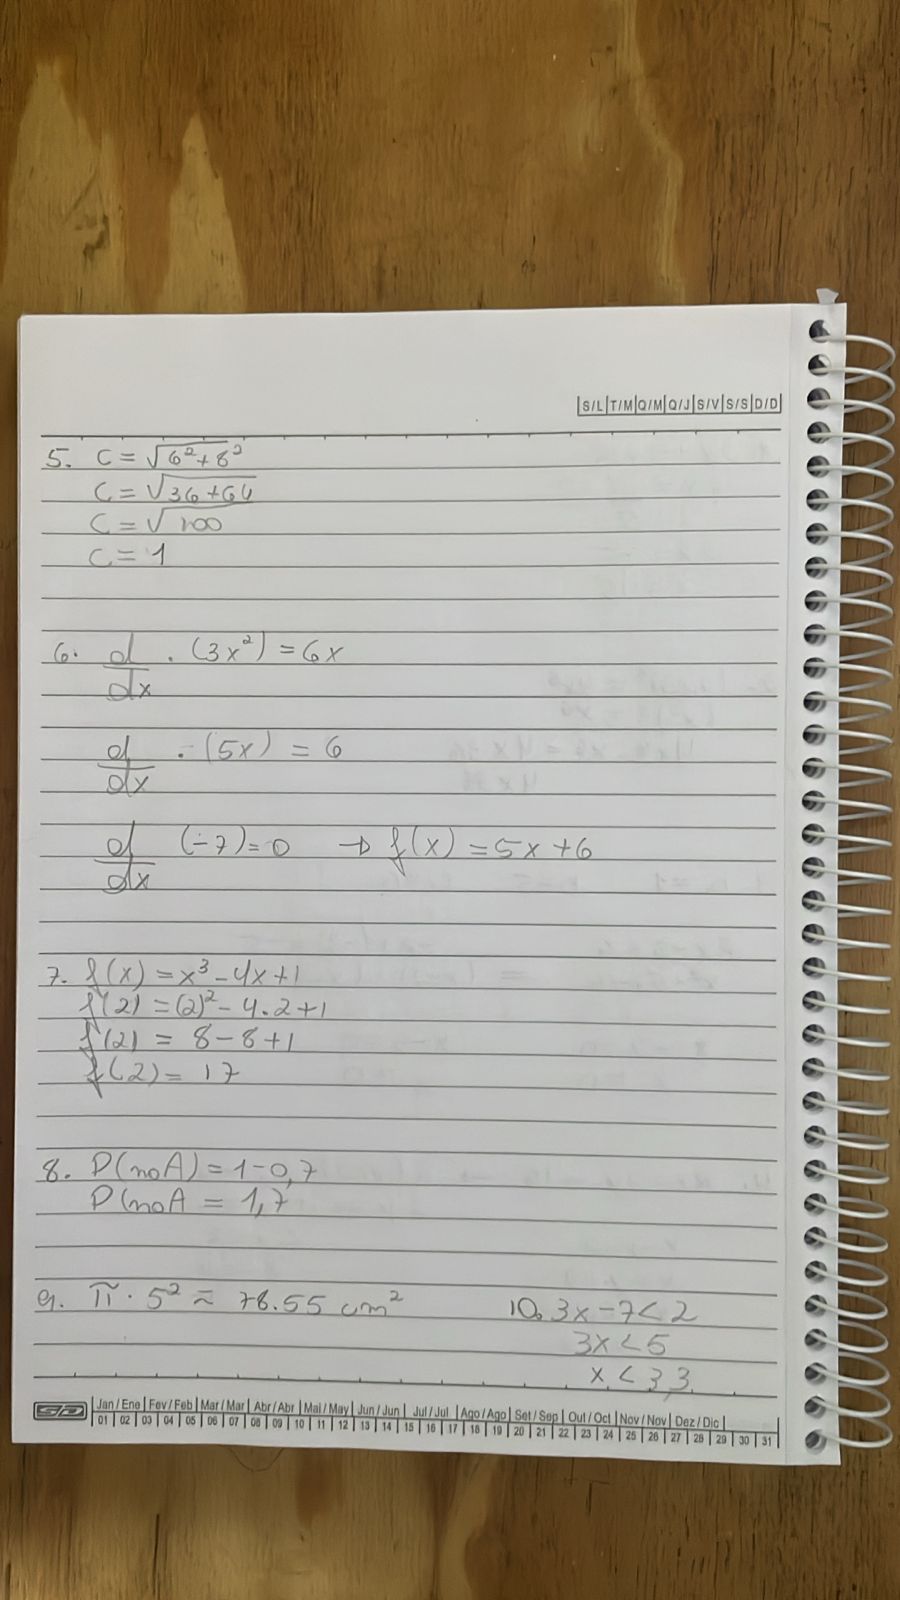 S/L T/M Q/M Q/J S/V S/S D/D
5. C = √6²+8²
C = √36+64
C = √100
C = 1
6. d/dx . (3x²) = 6x
d/dx . (5x) = 6
d/dx (-7) = 0 → f(x) = 5x+6
7. f(x) = x³ - 4x+1
f(2) = (2)² - 4.2+1
f(2) = 8-8+1
f(2) = 17
8. P(noA) = 1-0,7
P(noA = 1,7
9. π . 5² ≈ 78.55 cm²
10. 3x-7<2
3x<5
x<3,3
SD
Jan/Ene Fev/Feb Mar/Mar Abr/Abr Mai/May Jun/Jun Jul/Jul Ago/Ago Set/Sep Out/Oct Nov/Nov Dez/Dic
01 02 03 04 05 06 07 08 09 10 11 12 13 14 15 16 17 18 19 20 21 22 23 24 25 26 27 28 29 30 31